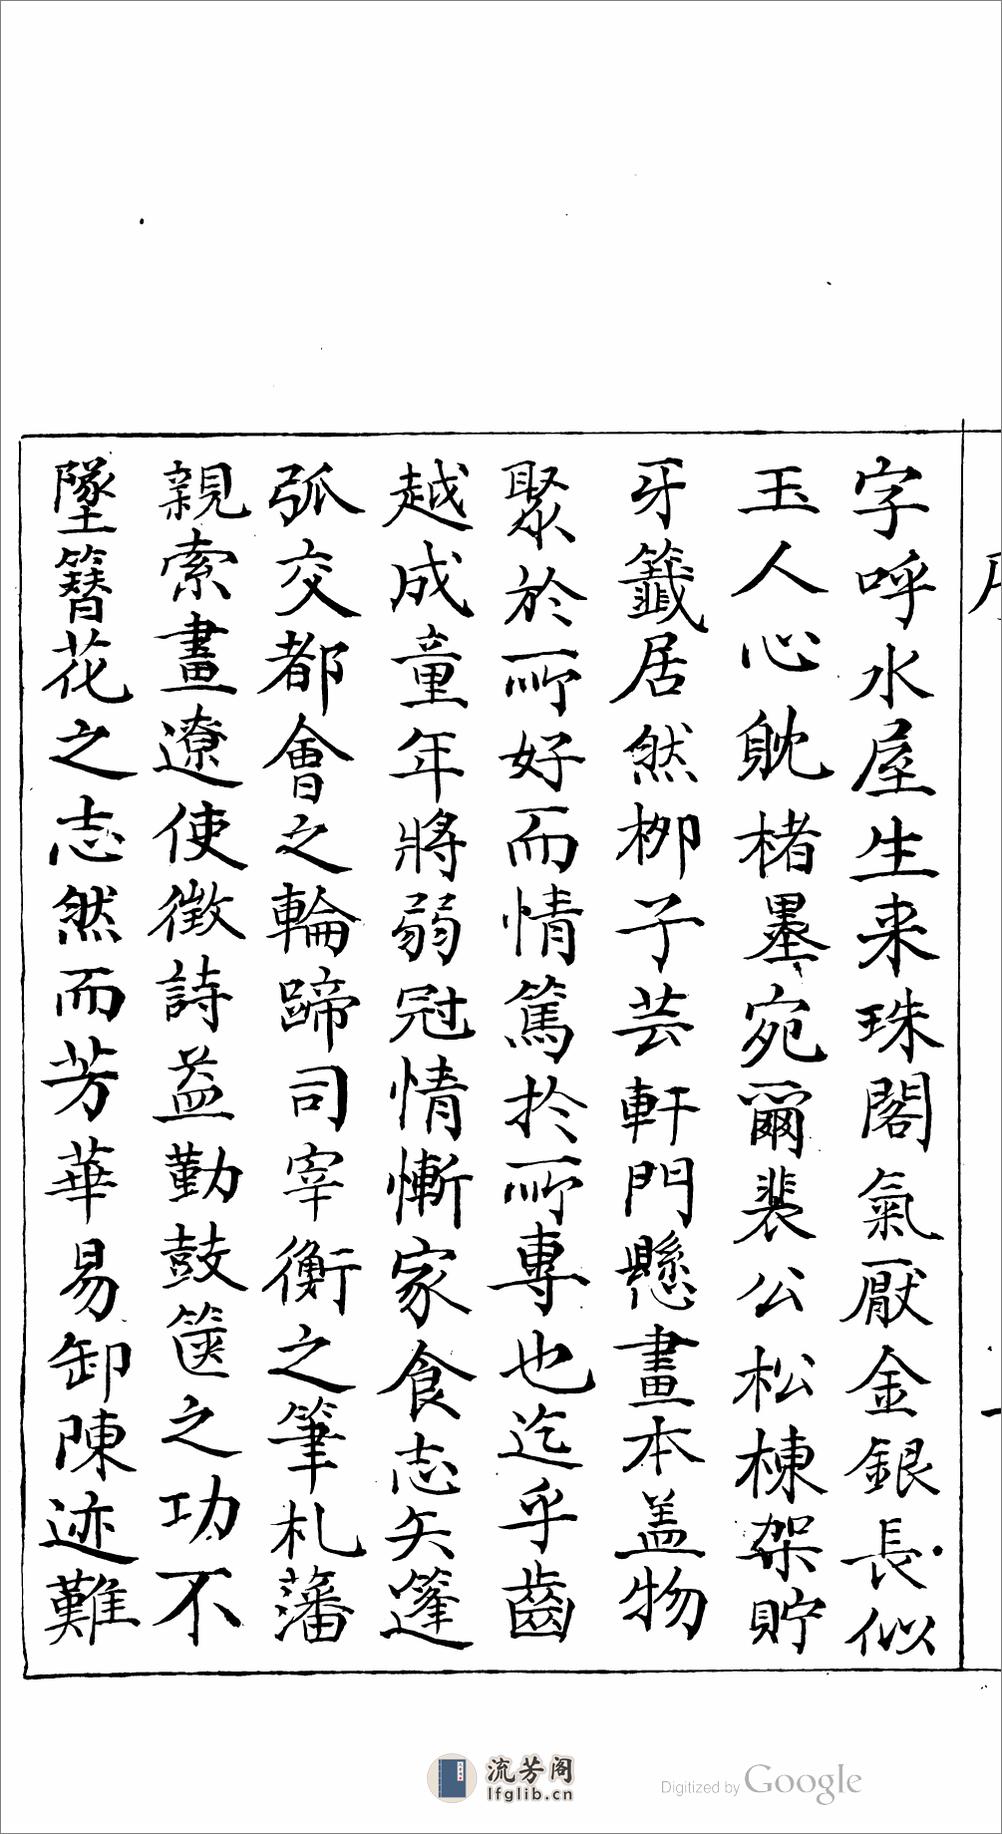 字呼水屋生来珠閣氣厭金銀長似
玉人心躭楮墨宛爾裴公松棟架貯
牙籤居然柳子芸軒門懸畫本盖物
聚於所好而情篤扵所專也迄乎齒
越成童年將弱冠情慚家食志矢篷
弧交都會之輪蹄司宰衡之筆札藩
親索畫遼使徴詩益勤鼓篋之功不
墜簪花之志然而芳華易卸陳迹難
流芳阁
lfglib.cn
Digitized by Google